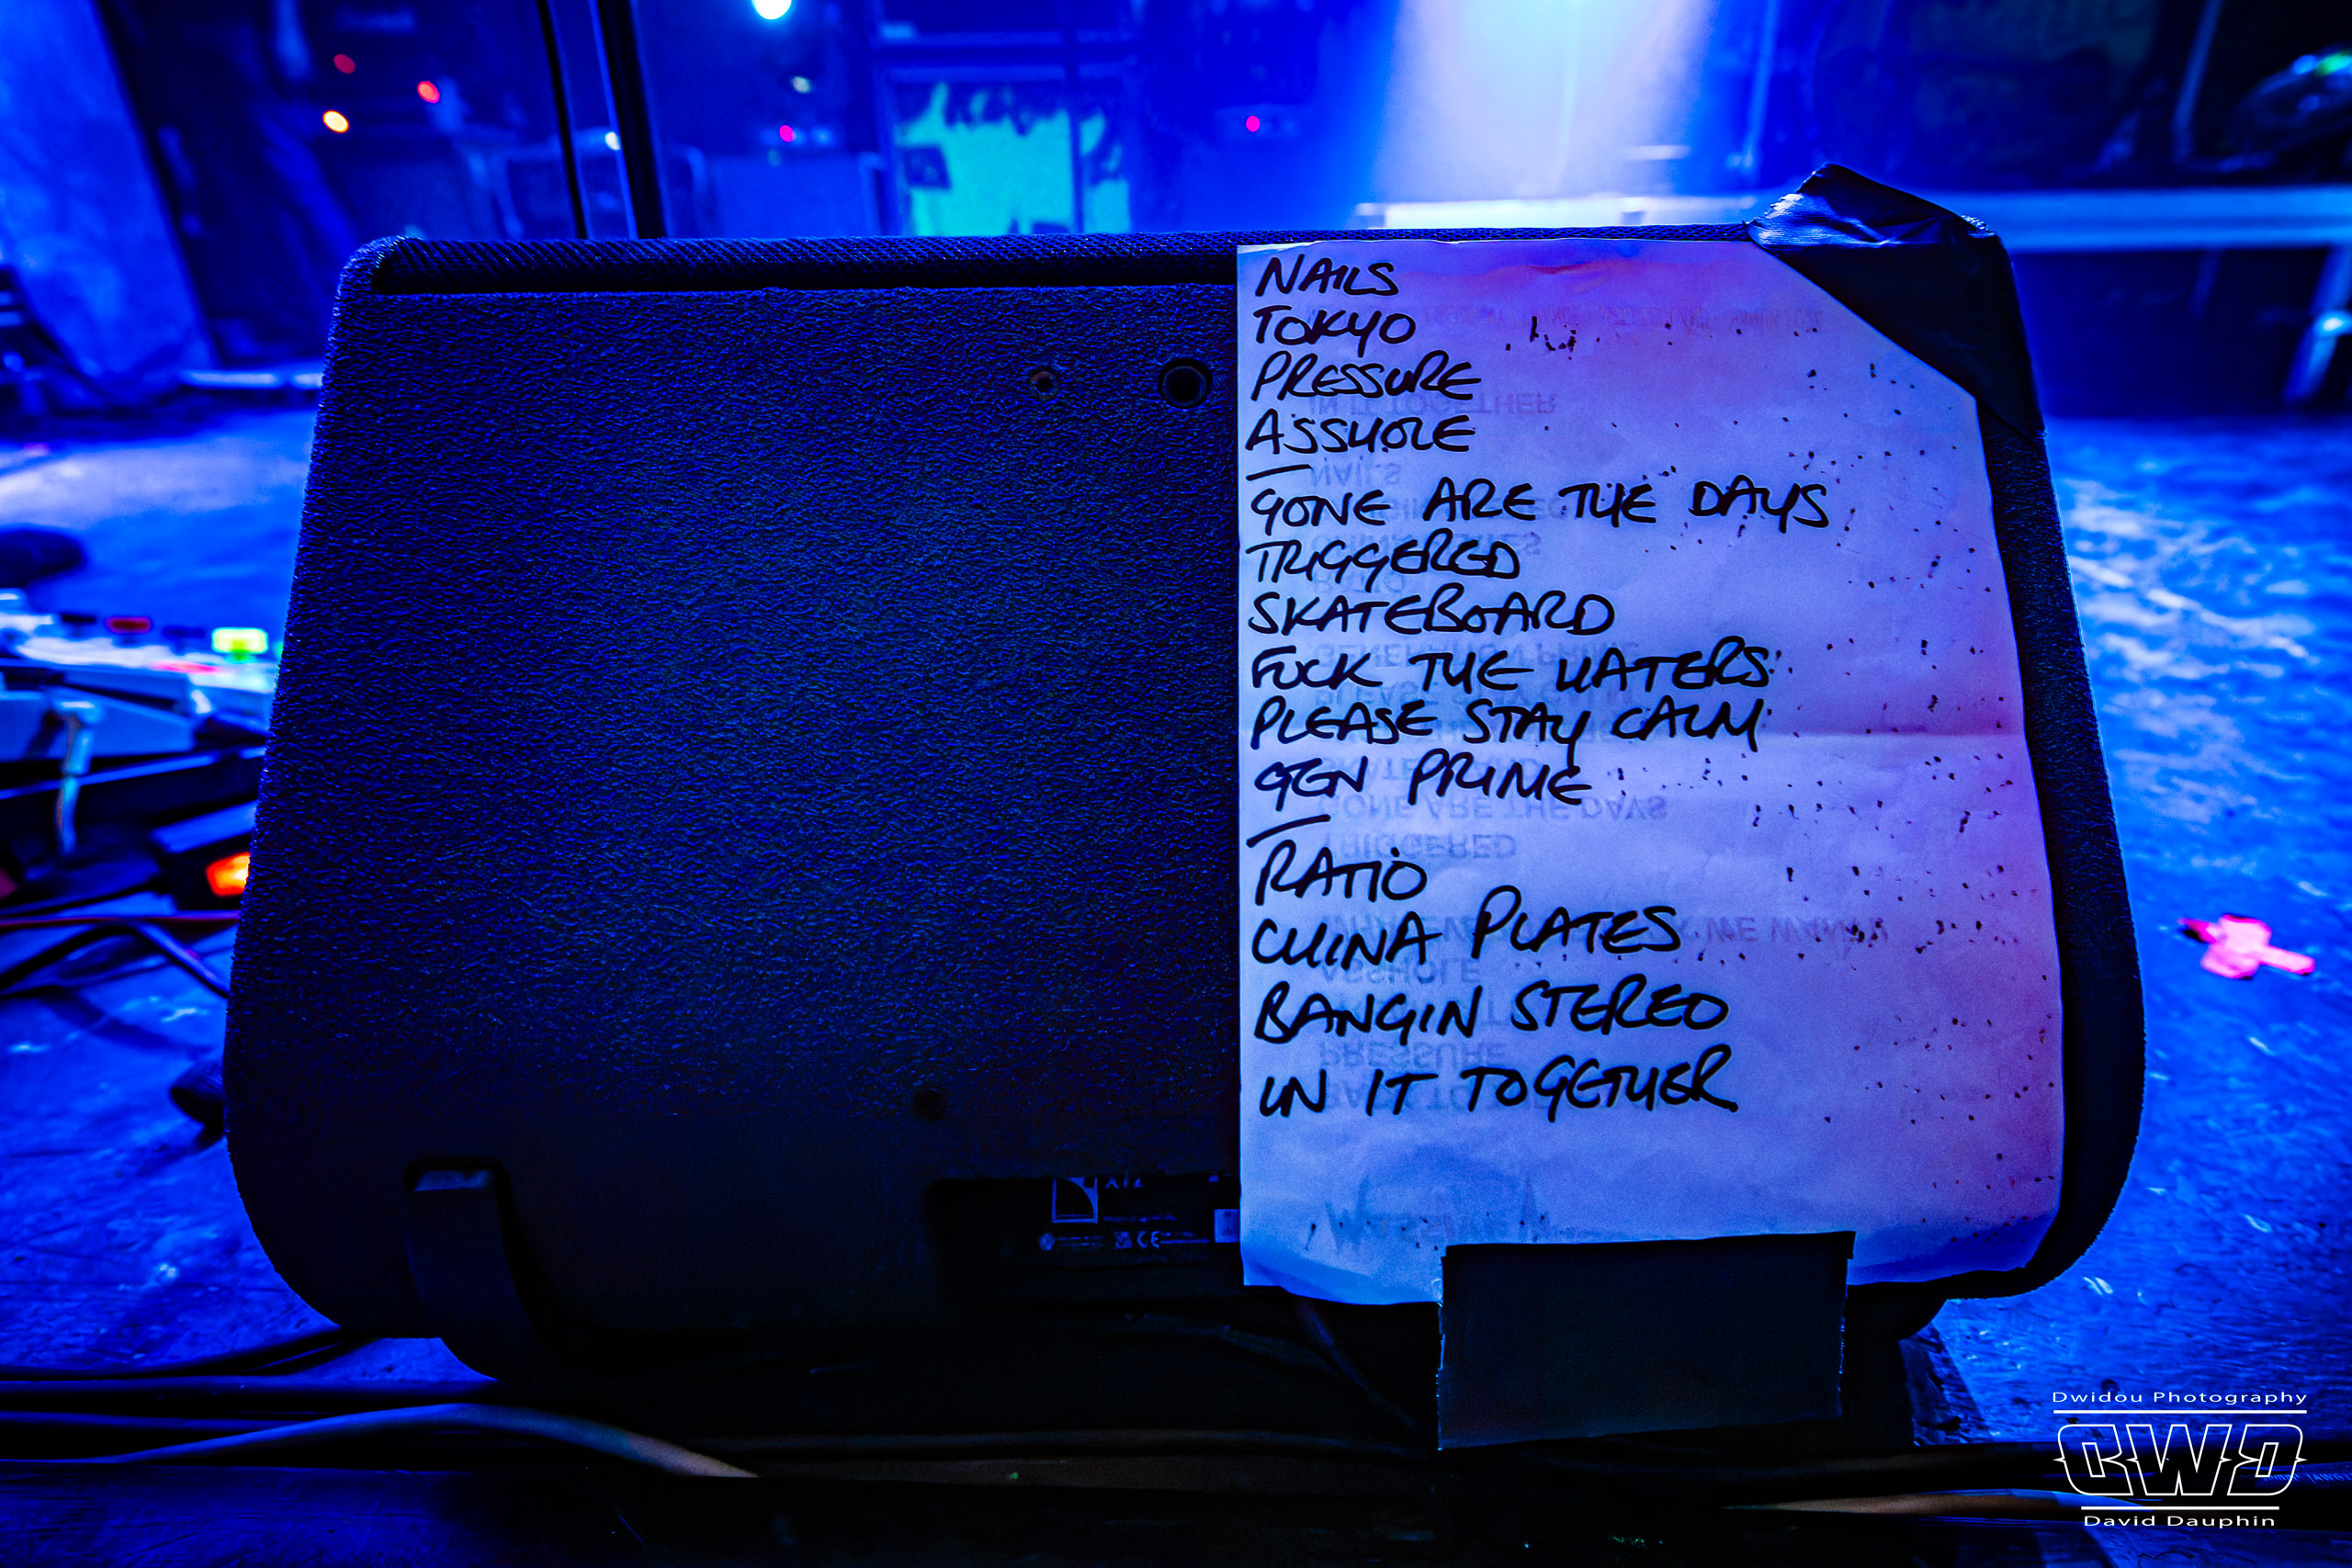 NAILS
TOKYO
PRESSURE
ASSHOLE
GONE ARE THE DAYS
TRIGGERED
SKATEBOARD
FUCK THE HATERS
PLEASE STAY CALM
GEN PRIME
RATIO
CHINA PLATES
BANGIN STEREO
IN IT TOGETHER
CE
Dwidou Photography
DWD
David Dauphin